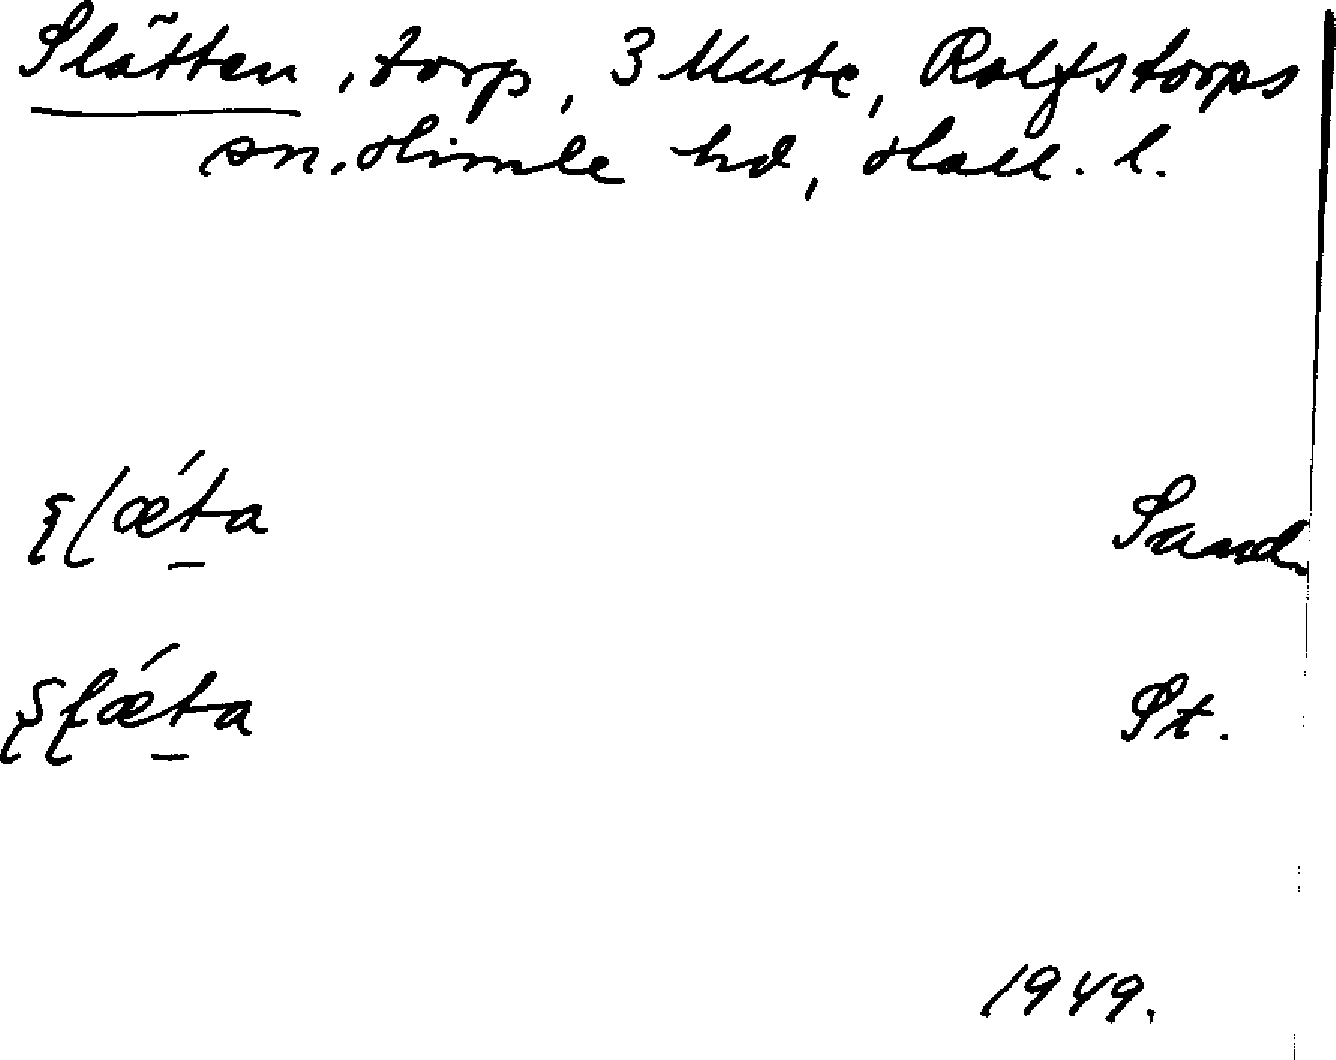 Slätten, torp, 3 Mute, Rolfstorps
sn. Himle hd, Hall. l.
slǽta Sand
slǽta St.
1949.